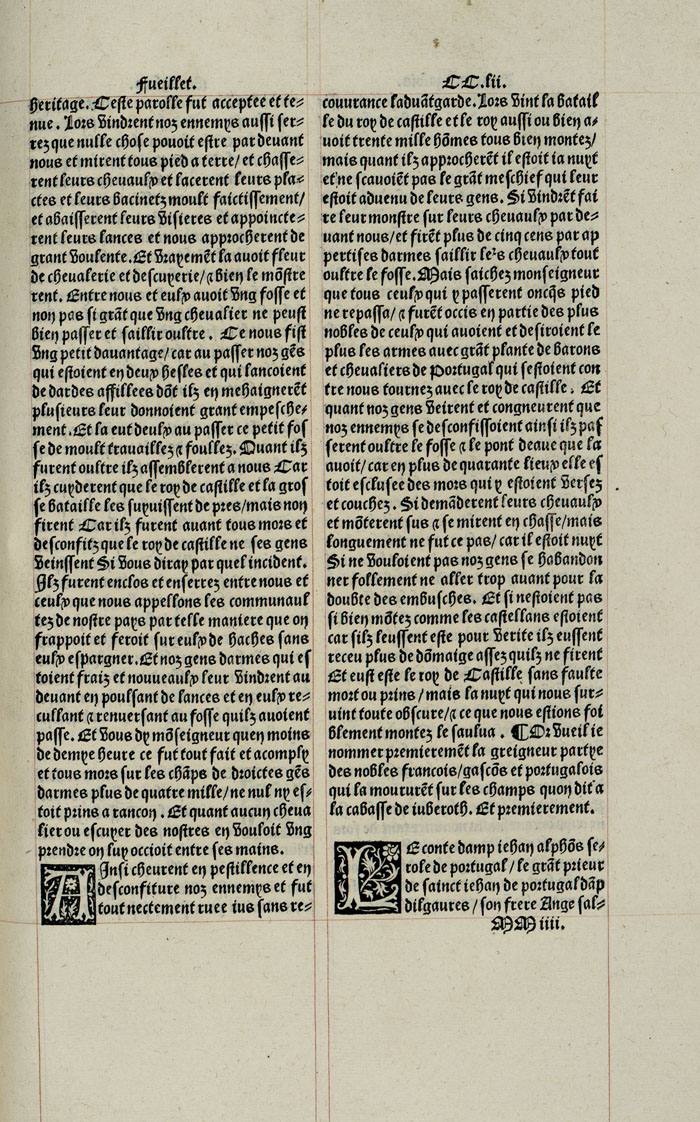 Fueillet. CC.lii.
heritage. Ceste parolle fut acceptee et te⸗
nue. Lors vindrent noz ennemys aussi ser⸗
rez que nulle chose pouoit estre par deuant
nous et mirent tous pied a terre/ et chasse⸗
rent leurs cheuaulx et lacerent leurs pla⸗
ctes et leurs bacinetz moult faictissement/
et abaisserent leurs visieres et appoincte⸗
rent leurs lances et nous approcherent de
grant voulente. Et vrayemẽt la auoit fleur
de cheualerie et descuyerie/⁊ bien le mõstre
rent. Entre nous et eulx auoit vng fosse et
non pas si grãt que vng cheualier ne peust
bien passer et saillir oultre. Ce nous fist
vng petit dauantage/ car au passer noz gẽs
qui estoient en deux hesles et qui lancoient
de dardes affillees dõt ilz en mehaignerẽt
plusieurs leur donnoient grant empesche⸗
ment. Et la eut deulx au passer ce petit fos
se de moult trauaillez ⁊ foullez. Quant ilz
furent oultre ilz assemblerent a nous Car
ilz cuyderent que le roy de castille et la gros
se bataille les suyuissent de pres/mais non
firent Car ilz furent auant tous mors et
desconfitz que le roy de castille ne ses gens
veinssent Si vous diray par quel incident.
Ilz furent enclos et enserrez entre nous et
ceulx que nous appellons les communaul
tez de nostre pays par telle maniere que on
frappoit et feroit sur eulx de haches sans
eulx espargner. Et noz gens darmes qui es
toient fraiz et nouueaulx leur vindrent au
deuant en poulsant de lances et en eulx re⸗
cullant ⁊ renuersant au fosse quilz auoient
passe. Et vous dy mõseigneur quen moins
de demye heure ce fut tout fait et acomply
et tous mors sur les chãps de droictes gẽs
darmes plus de quatre mille/ne nul ny es⸗
toit prins a rancon. Et quant aucun cheua
lier ou escuyer des nostres en vouloit vng
prendre on luy occioit entre ses mains.
AInsi cheurent en pestillence et en
desconfiture noz ennemys et fut
tout nectement ruee ius sans re⸗
couurance laduãtgarde. Lors vint la batail
le du roy de castille et le roy aussi ou bien a⸗
uoit trente mille hõmes tous bien montez/
mais quant ilz approcherẽt il estoit ia nuyt
et ne scauoiẽt pas le grãt meschief qui leur
estoit aduenu de leurs gens. Si vindrẽt fai
re leur monstre sur leurs cheuaulx par de⸗
uant nous/et firẽt plus de cinq cens par ap
pertises darmes saillir leꝰs cheuaulx tout
oultre le fosse. Mais saichez monseigneur
que tous ceulx qui y passerent oncq̃s pied
ne repassa/ ⁊ furẽt occis en partie des plus
nobles de ceulx qui auoient et desiroient le
plus les armes auec grãt plante de barons
et cheualiers de Portugal qui sestoient con
tre nous tournez auec le roy de castille. Et
quant noz gens veirent et congneurent que
noz ennemys se desconfissoient ainsi ilz pas
serent oultre le fosse ⁊ le pont deaue que la
auoit/ car en plus de quarante lieux elle es
toit esclusee des mors qui y estoient versez
et couchez. Si demãderent leurs cheuaulx
et mõterent sus ⁊ se mirent en chasse/mais
longuement ne fut ce pas/ car il estoit nuyt
Si ne vouloient pas noz gens se habandon
ner follement ne aller trop auant pour la
doubte des embusches. Et si nestoient pas
si bien mõtez comme les castellans estoient
car silz leussent este pour verite ilz eussent
receu plus de dõmaige assez quilz ne firent
Et eust este le roy de Castille sans faulte
mort ou prins / mais la nuyt qui nous sur⸗
uint toute obscure/⁊ ce que nous estions foi
blement montez le saulua. ¶Or vueil ie
nommer premieremẽt la greigneur partye
des nobles francois/gascõs et portugalois
qui la moururẽt sur les champs quon dit a
la cabasse de iuberoth. Et premierement.
LE conte damp iehan alphõs se⸗
role de portugal / le grãt prieur
de sainct iehan de portugal dãp
dilgaures / son frere Ange sal⸗
MM iiii.